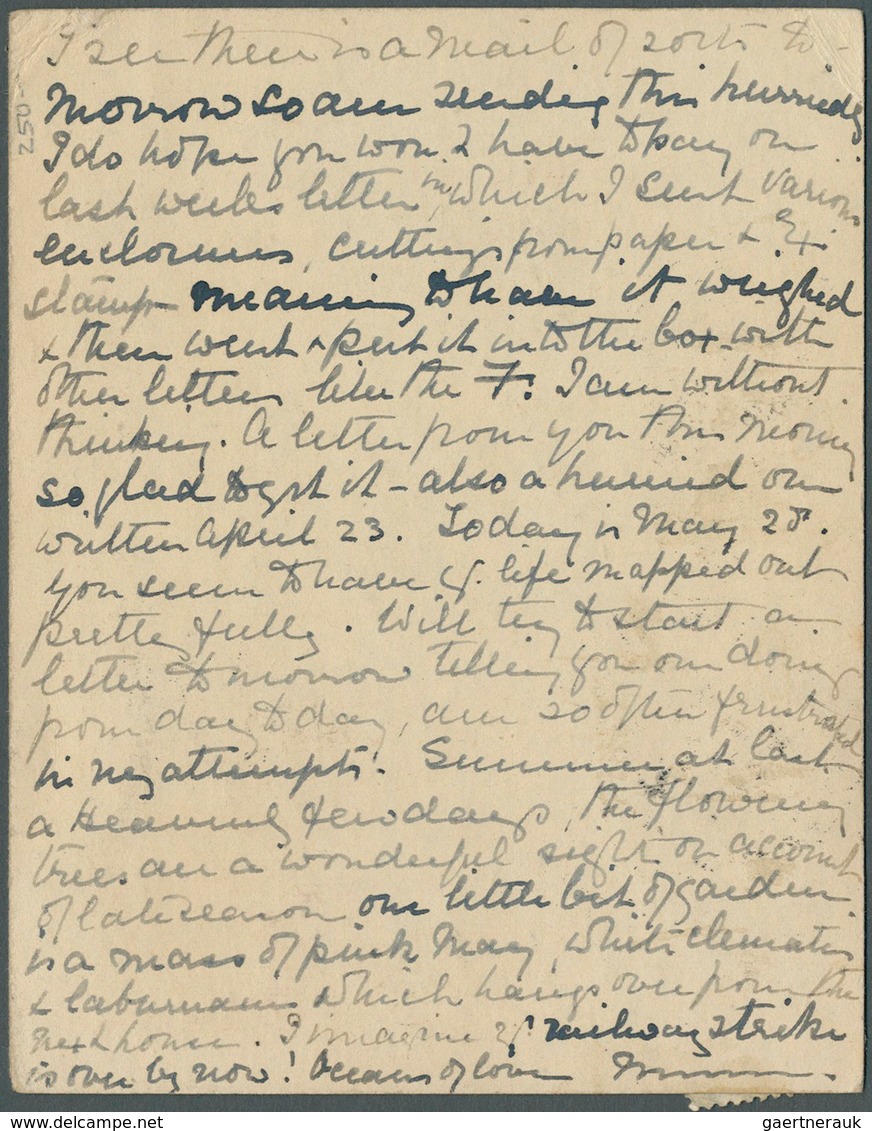 I see there is a mail of sorts to-
morrow so am sending this hurriedly
I do hope you won't have to pay on
last week's letter in which I sent various
enclosures, cuttings from paper &
stamp meaning to have it weighed
& then went & put it into the box with
other letters like the F. I am without
thinking. A letter from you this morning
so glad to get it - also a hurried one
written April 23. Today is May 28.
You seem to have yr. life mapped out
pretty fully. Will try to start a
letter tomorrow telling you our doings
from day to day, am so often frustrated
in my attempts. Summer at last
a Heavenly few days, the flowering
trees are a wonderful sight on account
of late season our little bit of garden
is a mass of pink May, white clematis
& laburnams which hangs over from the
next house. I imagine yr railway strike
is over by now! Oceans of love Mum.
250
gaertnerauk